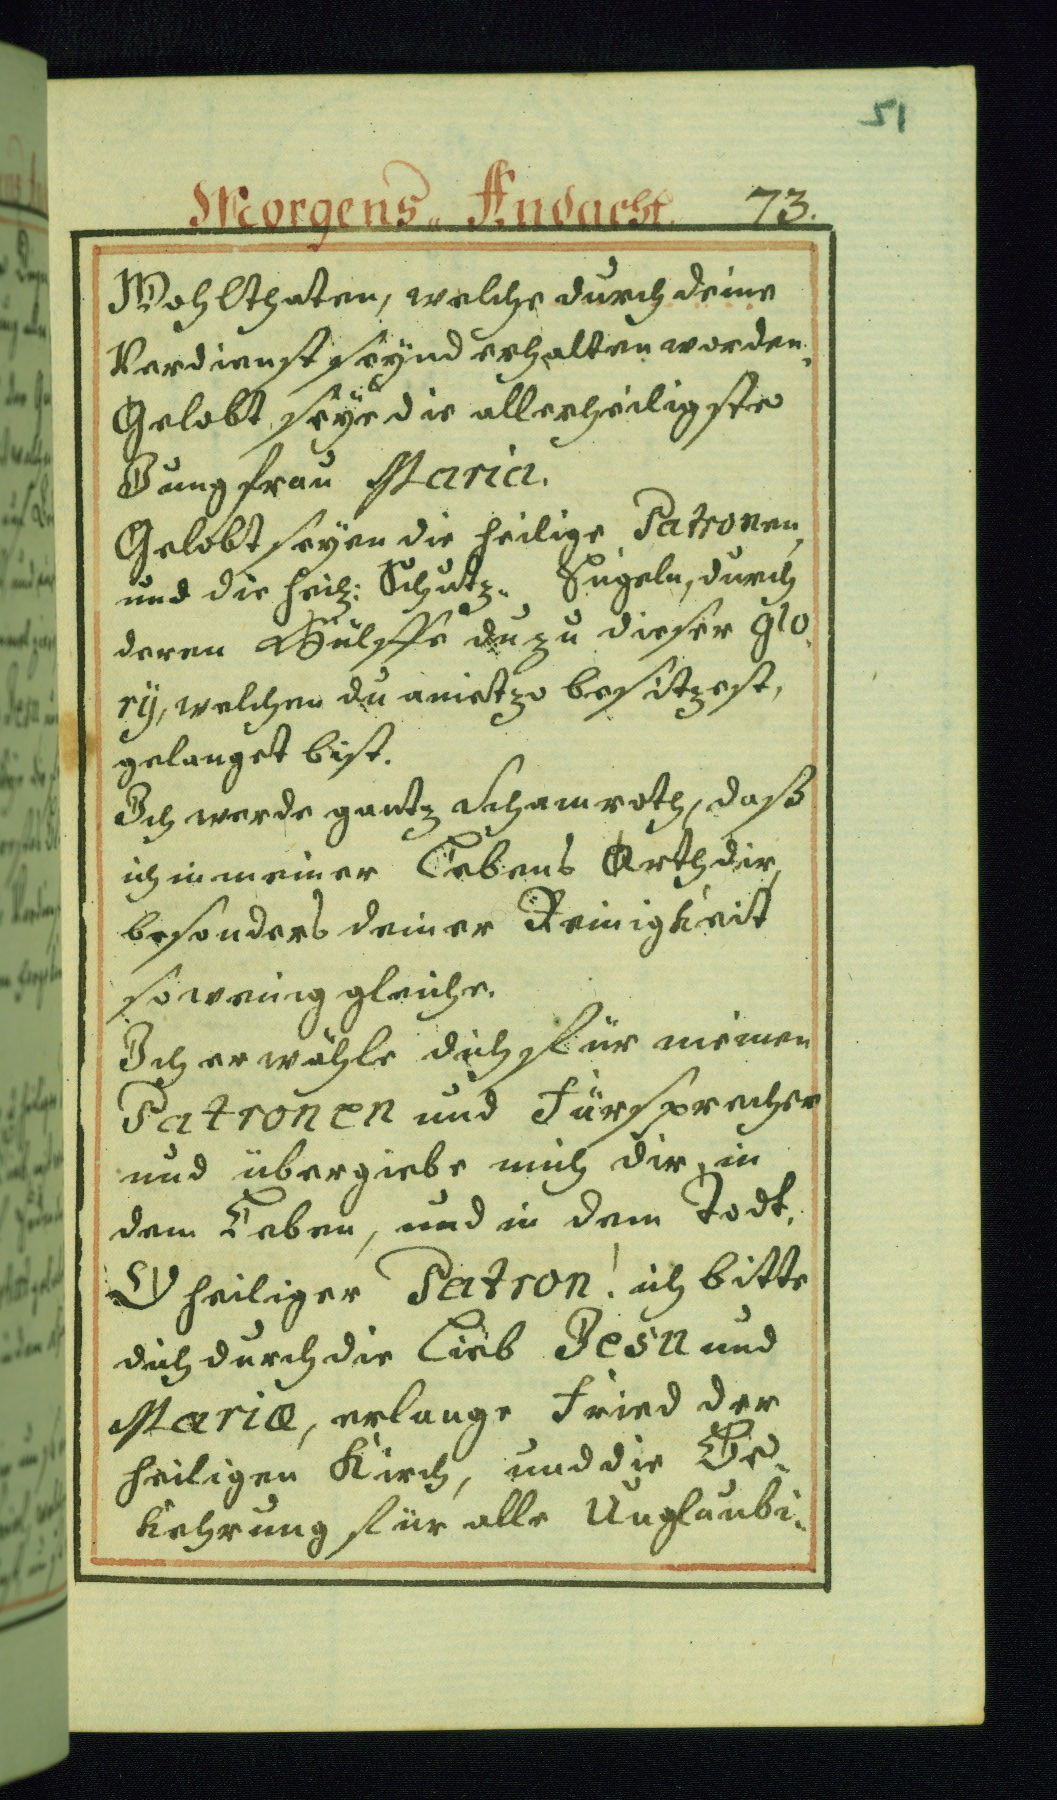 51
Morgens„ Andacht. 73.
Wohlthaten, welche durch deine
Verdienst seÿnd erhalten worden.
Gelobt seÿe die allerheiligste
Jungfrau Maria.
Gelobt seÿen die heilige Patronen,
und die heil: Schutz„ Engeln, durch
deren Hülffe du zu dieser glo„
rÿ, welchen du anietzo besitzest,
gelanget bist.
Ich werde gantz schamroth, daß
ich in meiner Lebens Arth dir,
besonders deiner Reinigkeit
so wenig gleiche.
Ich erwähle dich für meinen
Patronen und Fürsprecher
und übergiebe mich dir, in
dem Leben, und in dem Todt.
O heiliger Patron! ich bitte
dich durch die Lieb Jesu und
Mariæ, erlange Fried der
heiligen Kirch, und die Be„
kehrung für alle Unglaubi„